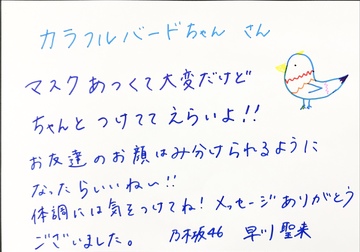 カラフルバードちゃん さん
マスクあつくて大変だけど
ちゃんとつけててえらいよ!!
お友達のお顔はみ分けられるように
なったらいいねー!!
体調には気をつけてね!メッセージありがとう
ございました。 乃木坂46 早川聖来